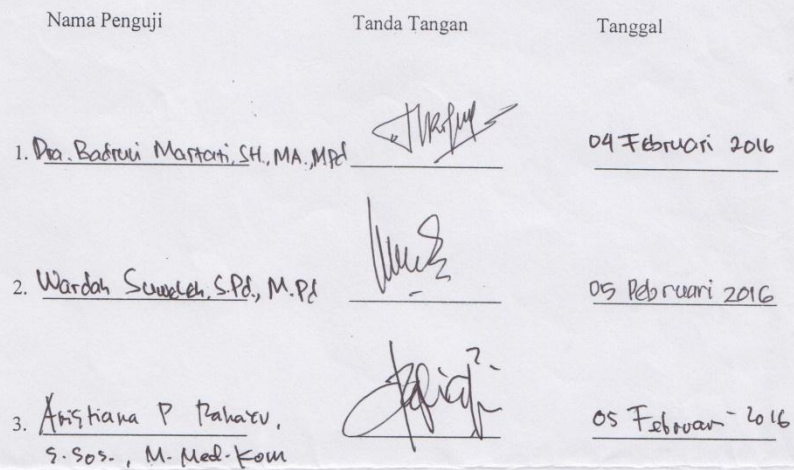 Nama Penguji Tanda Tangan Tanggal
1. Dra. Badruni Martati, SH., MA., MPd 04 Februari 2016
2. Wardah Suweleh, S.Pd., M.Pd 05 Pebruari 2016
3. Aristiana P Rahayu, 05 Februari 2016
S.Sos., M.Med.Kom